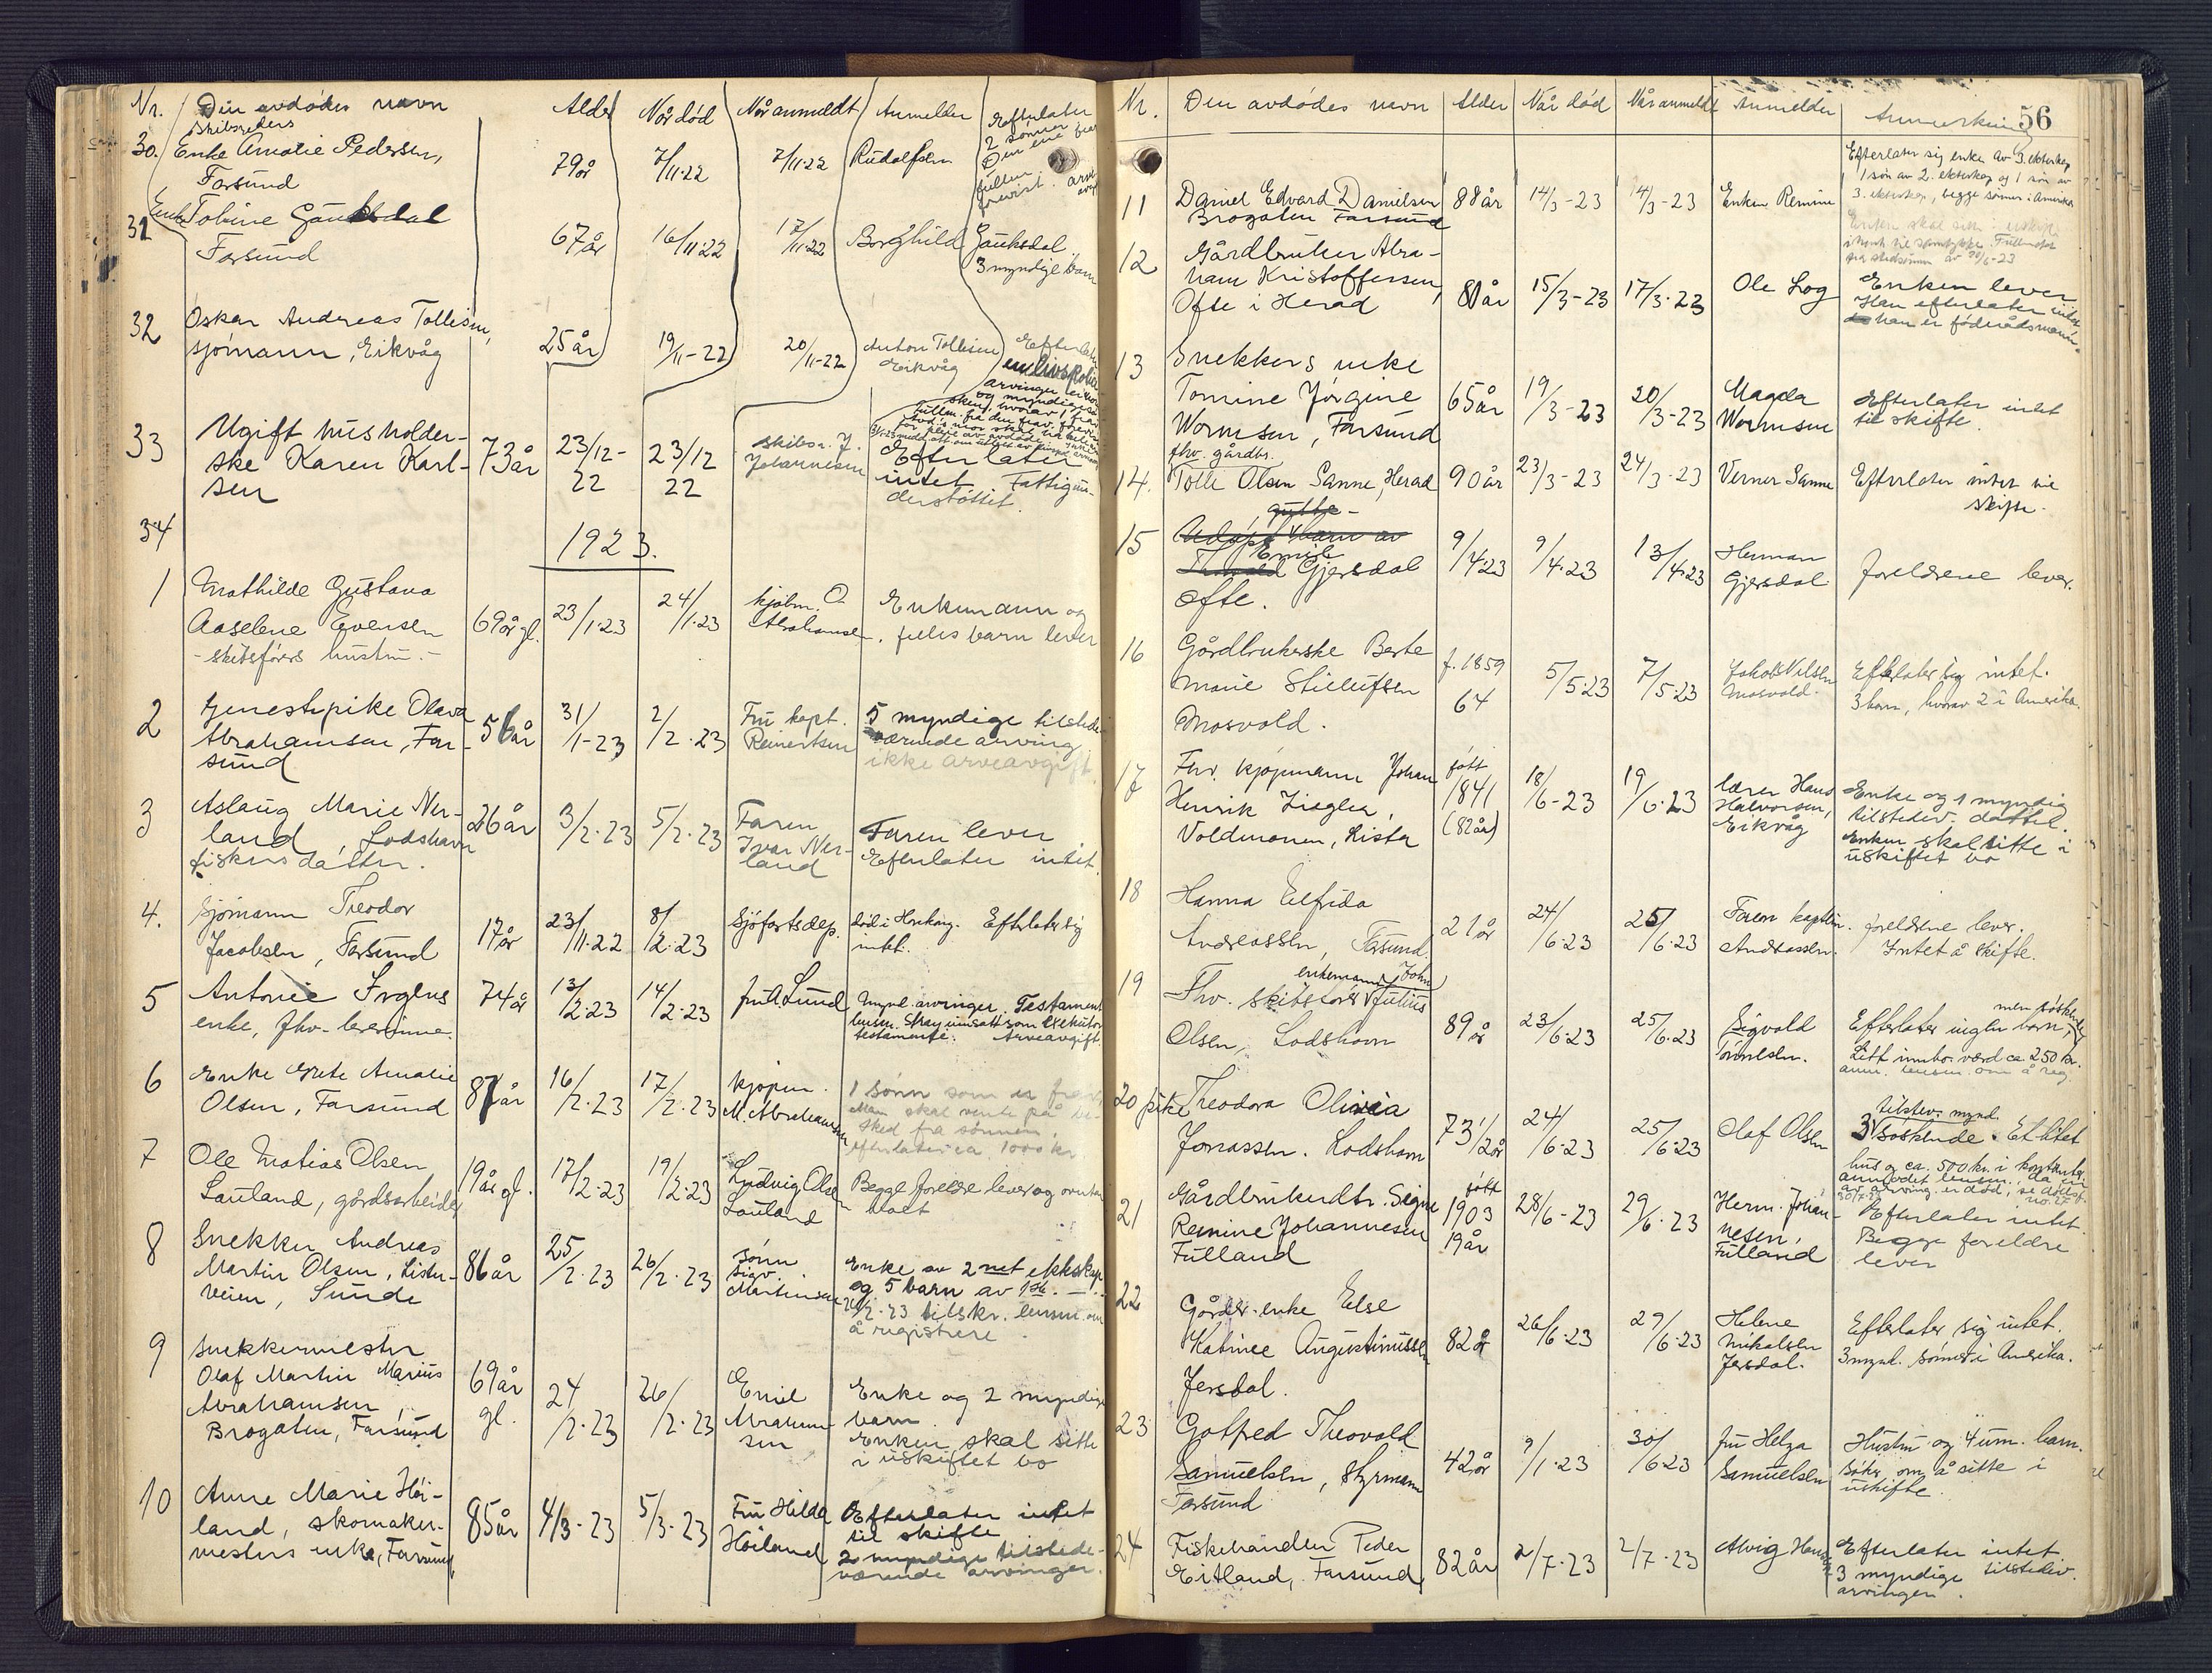 Nr. Den avdødes navn Alder Når død Når anmeldt Anmelder Efterlater
30. skibsreders
Enke Amalie Pedersen,
Farsund
79 år 7/11.22 7/11.22 Rudolfsen 2 sønner
Den ene fra
31 Enke Tobine Gauksdal
Farsund
67 år 16/11.22 17/11.22 Borghild Gauksdal
3 myndige barn
32 Oskar Andreas Tollesen,
sjømann, Eikvåg
25 år 19/11-22 20/11-22 Anton Tollesen
Eikvåg
Efterlater
en livspolise
33 Ugift husholder-
ske Karen Karl-
sen
73 år 23/12-
22
23/12
22
skibsr. J.
Johannesen
Efterlater
intet. Fattigun-
derstøttet.
34
1923.
1 Mathilde Gustava
Aaselene Evensen
- skibsførers hustru. -
69 år gl. 23/1.23 24/1.23 kjøbm. O.
Abrahamsen.
Enkemann og
felles barn lever
2 tjenestepike Olava
Abrahamsen, Far-
sund
56 år 31/1-23 2/2.23 Fru kapt.
Reinertsen
5 myndige tilstede-
værende arving
ikke arveavgift.
3 Aslaug Marie Ner-
land, Lodshavn
fiskers datter.
26 år 3/2.23 5/2.23 Faren
Ivar Ner-
land
Faren lever
Efterlater intet
4. Sjømann Theodor
Jacobsen, Farsund
17 år 23/11.22 8/2.23 Sjøfartsdep. død i Honkong. Efterlater sig
intet.
5 Antonie Irgens
enke, fhv. lererinne
74 år 13/2.23 14/2.23 fru A. Lund Mynd. arvinger. Testament
testamente. Arveavgift.
6 Enke Grete Amalie
Olsen, Farsund
87 år 16/2.23 17/2.23 kjøpm.
M. Abrahamsen
1 sønn som er
Man skal vente på be-
sked fra sønnen.
efterlater ca. 1000 kr
7 Ole Matias Olsen
Lauland, gårdsarbeider
19 år gl. 17/2.23 19/2.23 Ludvig Olsen
Lauland
Begge foreldre lever og
8 Snekker Andreas
Martin Olsen, Lister-
veien, Sunde
86 år 25/2.23 26/2.23 sønn
Sigv.
Martinsen
Enke av 2net ekteskap
og 5 barn av 1ste. -"-
26/2.23 tilskr. lensm. om
å registrere
9 Snekkermester
Olaf Martin Marius
Abrahamsen,
Brogaten, Farsund
69 år
gl.
24/2.23 26/2.23 Emil
Abraham-
sen
Enke og 2 myndige
barn.
Enken skal sitte
i uskiftet bo
10 Anne Marie Høi-
land, skomaker-
mesters enke, Farsund
85 år 4/3-23 5/3-23 Fru Hilda
Høiland
Efterlater intet
til skifte
2 myndige tilstede-
værende arvinger.
Nr. Den avdødes navn Alder Når død Når anmeldt Anmelder Anmerkning 56
11 Daniel Edvard Danielsen
Brogaten Farsund
88 år 14/3-23 14/3-23 Enken Remine
Efterlater sig enke av 3. ekteskap
1 søn av 2. ekteskap og 1 søn av
3. ekteskap, begge sønner i Amerika
12 Gårdbruker Abra-
ham Kristoffersen,
Ofte i Herad
80 år 15/3-23 17/3.23 Ole Log Enken lever.
Han efterlater intet
han er føderådsmann.
13 Snekkers enke
Tomine Jørgine
Wormsen, Farsund
65 år 19/3-23 20/3-23 Magda
Wormsen
Efterlater intet
til skifte.
14. fhv. gårdbr.
Tolle Olsen Sanne, Herad
90 år 23/3-23 24/3-23 Verner Sanne Efterlater intet til
skifte.
15 gutte-
Adopt. barn av
Emile
Gjersdal
Ofte.
9/4.23 9/4.23 13/4.23 Herman
Gjersdal
foreldrene lever.
16 Gårdbrukerske Berte
Marie Stellufsen
Mosvold.
f. 1859
64
5/5.23 7/5.23 Jakob Nilsen
Mosvold.
Efterlater sig intet.
3 barn, hvorav 2 i Amerika.
17 Fhv. kjøpmann Johan
Henrik Ziegler,
Voldmonen, Lista
født
1841
(82 år)
18/6-23 19/6.23 lærer Hans
Halvorsen,
Eikvåg
Enke og 1 myndig
tilstedev. datter.
Enken skal sitte i
uskiftet bo
18 Hanna Elfrida
Andreassen, Farsund.
21 år 24/6.23 25/6.23 Faren kaptein.
Andreassen.
foreldrene lever.
Intet å skifte.
19 enkemann John
Fhv. skibsfører Julius
Olsen, Lodshavn
89 år 23/6.23 25/6.23 Sigvald
Tønnesen.
men søskende
Efterlater ingen barn,
Litt innbo. værd ca. 250 kr.
anm. lensm. om å reg.
20 pike Theodora Olivia
Jonassen. Lodshavn
73 1/2 år 24/6.23 25/6.23 Olaf Olsen tilstev. mynd.
3 søskende. Et litet
hus og ca. 500 kr. i kontanter.
21 Gårdbrukerdtr. Signe
Remine Johannesen
Fulland
født
1903
19 år
28/6-23 29/6.23 Herm. Johan-
nesen,
Fulland
Efterlater intet.
Begge foreldre
lever
22 Gårdbr. enke Else
Katrine Augustinussen
Jersdal.
82 år 26/6.23 29/6.23 Helene
Mikalsen
Jersdal.
Efterlater sig intet.
3 mynd. sønner i Amerika.
23 Gotfred Theovald
Samuelsen, styrmann
Farsund
42 år 9/1.23 30/6.23 fru Helga
Samuelsen
Hustru og 4 um. barn.
Søker om å sitte i
uskifte.
24 Fiskehandler Peder
Eitland, Farsund
82 år 2/7.23 2/7.23 Alvig Efterlater intet
3 myndige tilstedev.
arvinger.